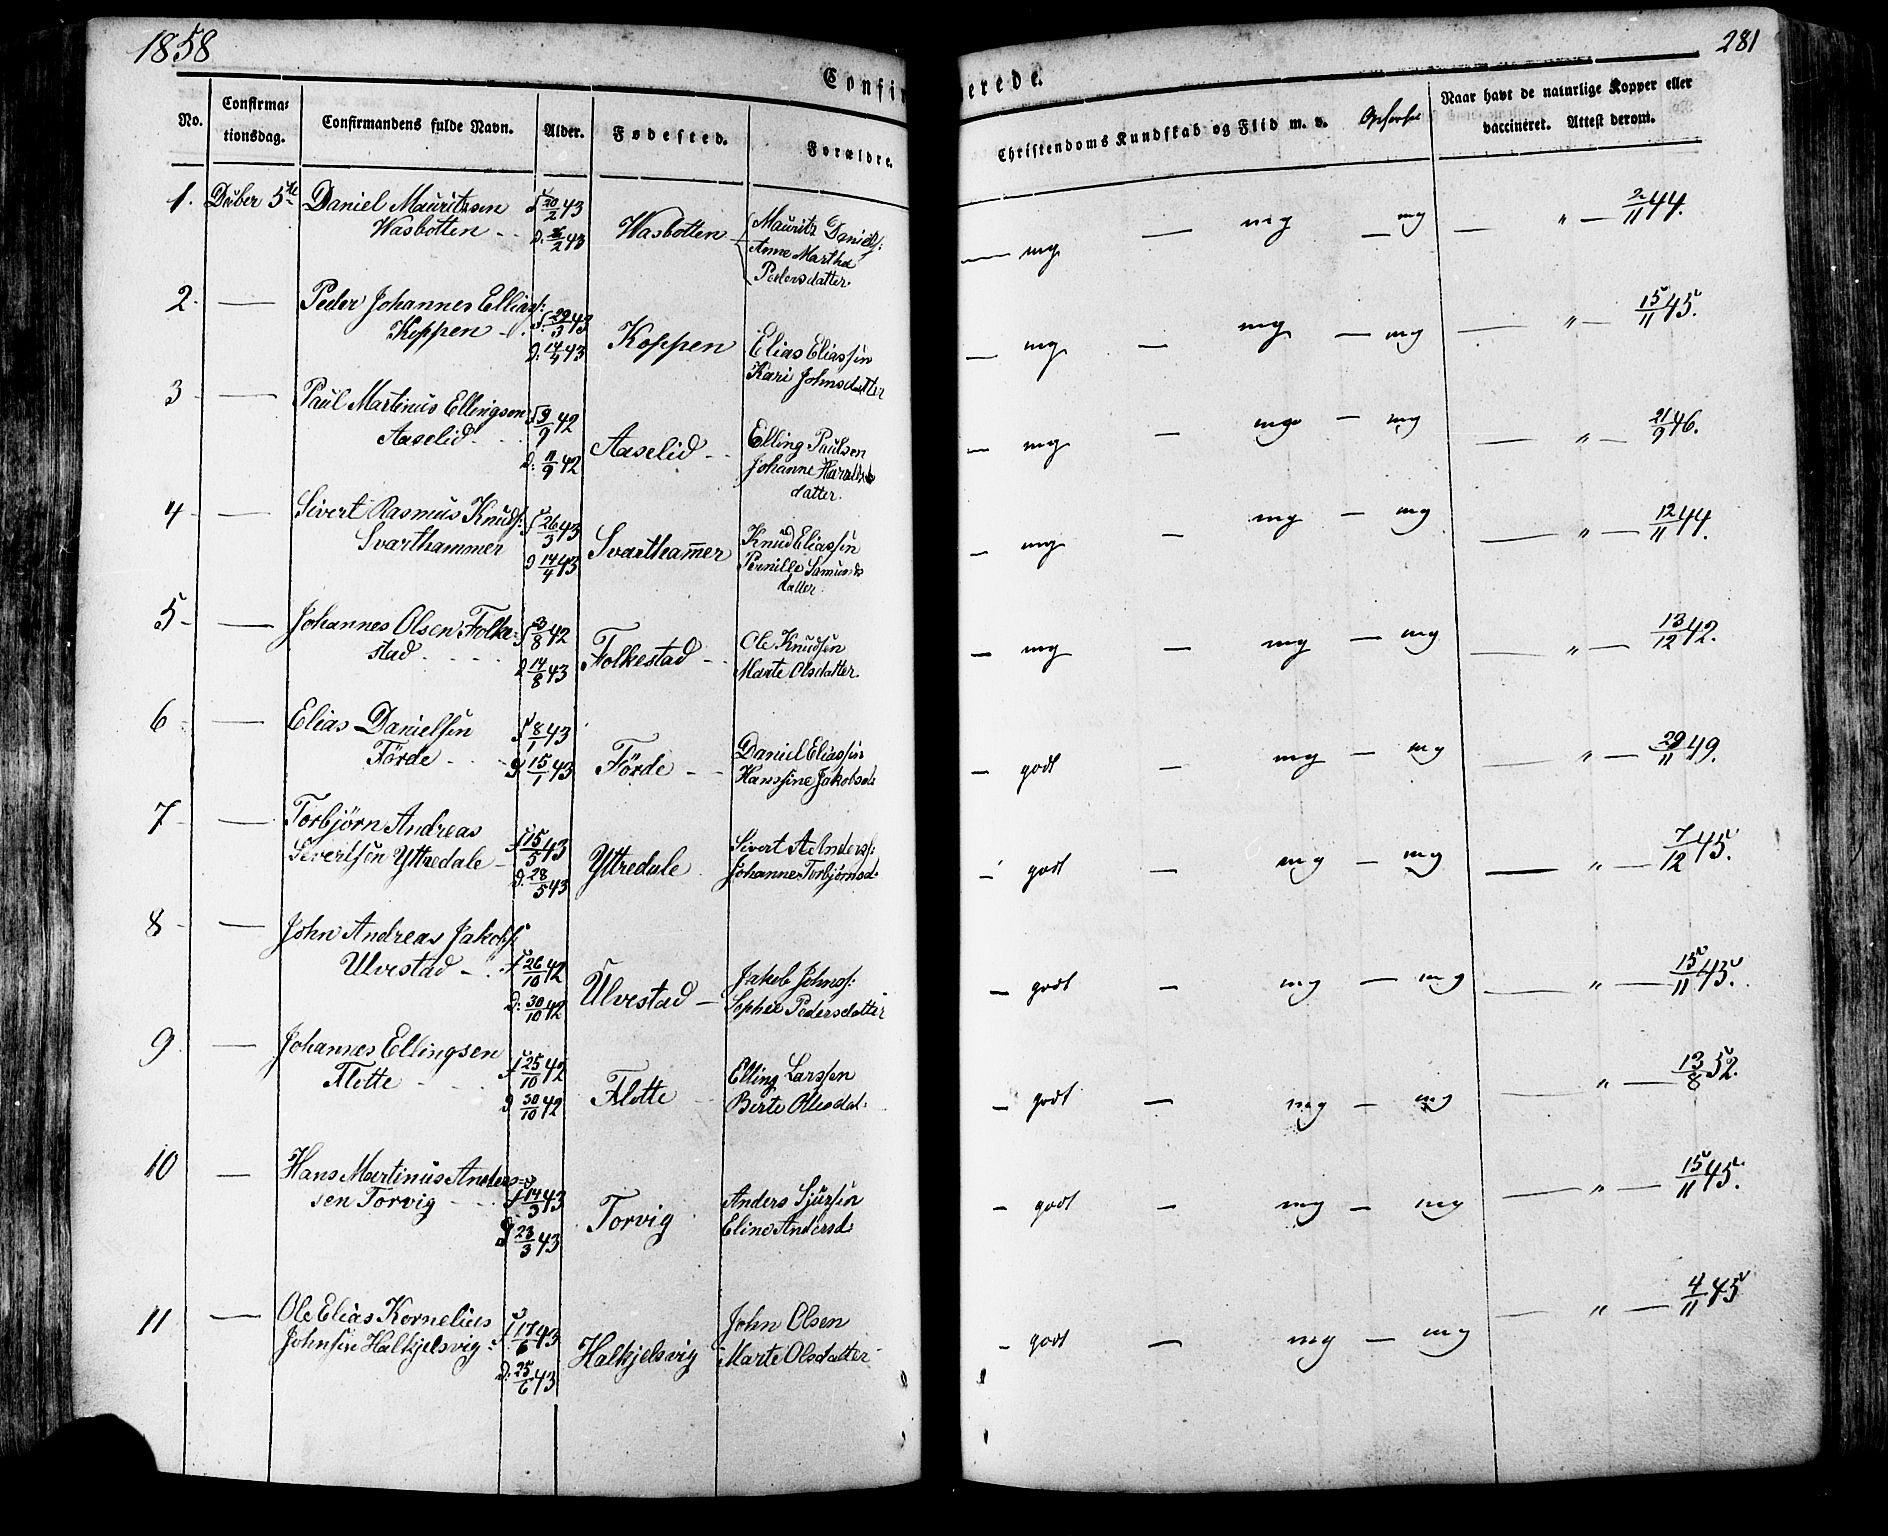 1858
281
Confirmerede.
No.
Confirma-
tionsdag.
Confirmandens fulde Navn.
Alder.
Fødested.
Forældre.
Christendoms Kundskab og Flid m. v.
Opførsel
Naar havt de naturlige Kopper eller
vaccineret. Attest derom.
1. Dcber 5te Daniel Mauritzsen f 20/2 43
Wasbotten - d: 26/2 43 Wasbotten Mauritz Daniels:
Anne Martha
Pedersdatter.
— mg — mg — mg — " — 2/11 44.
2. — Peder Johannes Ellias: f. 29/3 43
Koppen - d. 14/4 43 Koppen Elias Eliassen
Kari Johnsdatter
— mg — mg — mg — " — 15/11 45.
3 — Paul Martinus Ellingsen f 9/9 42
Aaselid - d: 11/9 42 Aaselid - Elling Paulsen
Johanne Haralds
datter.
— mg — mg — mg — " — 21/9 46.
4 — Sivert Rasmus Knuds: f 26/3 43
Svarthammer d 14/4 43 Svartham̅er Knud Eliassen
Pernille Samunds
datter.
— mg — mg — mg — " — 12/11 44.
5 — Johannes Olsen Folke= f 3/8 42
stad - d 14/8 43 Folkestad - Ole Knudsen
Marte Olsdatter.
— mg — mg — mg — " — 13/12 42.
6 — Elias Danielsen f 8/1 43
Förde - d 15/1 43 Förde - Daniel Eliassen
Hanssine Jakobsd:
— godt — mg — mg — " — 29/11 49.
7 — Torbjørn Andreas f 15/5 43
Sivertsen Yttredale - d. 28/5 43 Yttredale Sivert Anderss:
Johanne Torbjørnsd:
— godt — mg — mg — " — 7/12 45.
8 — John Andreas Jakobs: f 26/10 42
Ulvestad - d: 30/10 42 Ulvestad - Jakob Johns:
Sophie Pedersdatter
— godt — mg — mg — " — 15/11 45.
9 — Johannes Ellingsen f 25/10 42
Flotte - d 30/10 42 Flotte Elling Larssen
Berte Olesdat:
— godt — mg — mg — " — 13/8 52.
10 — Hans Martinus Anders= f 14/3 43
sen Torvig - d 23/3 43 Torvig Anders Sjursen
Eline Andersd:
— godt — mg — mg — " — 15/11 45.
11 — Ole Elias Kornelius f 17/6 43
Johnsen Halkjelsvig - d: 25/6 43 Halkjelsvig John Olsen
Marte Olsdatter
— godt — mg — mg — " — 4/11 45